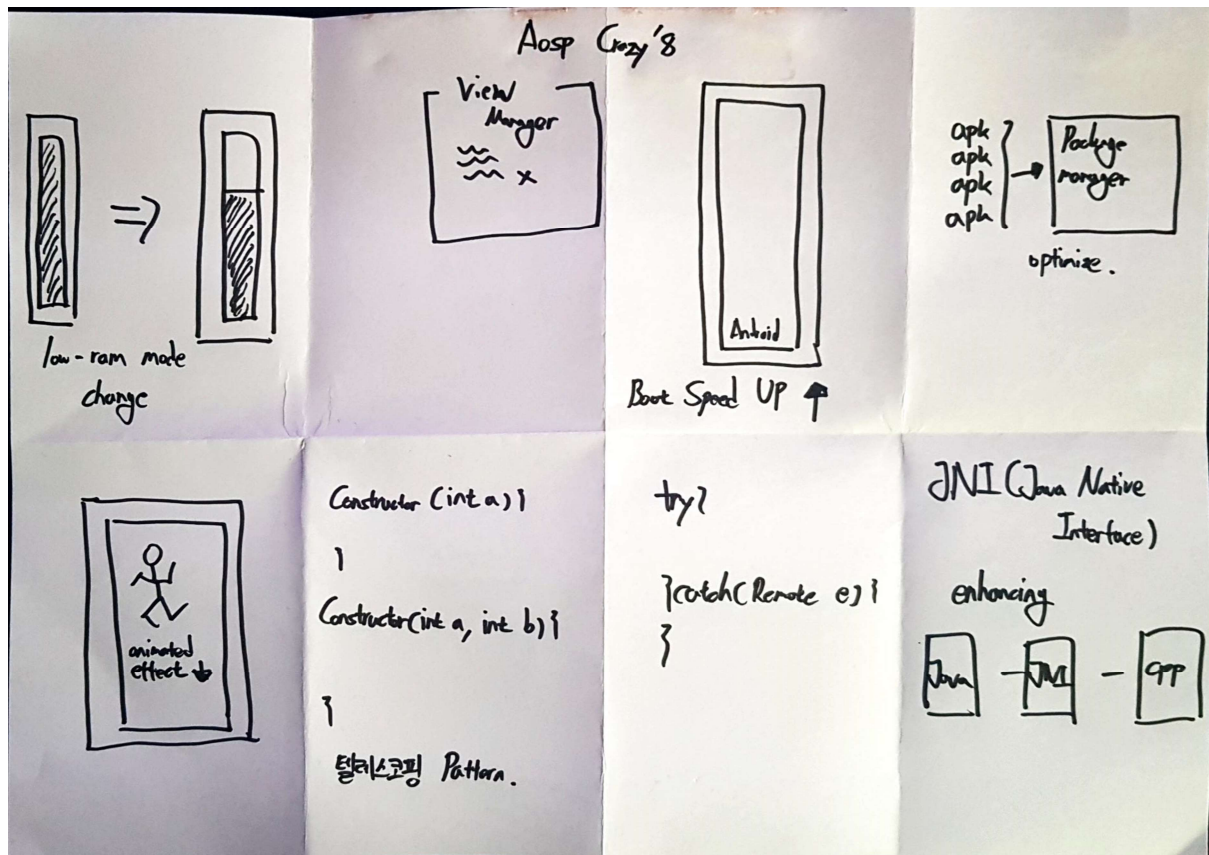 Aosp Crazy'8
low-ram mode
change
View
Manager
x
Android
Boot Speed UP ↑
apk
apk
apk
apk
Package
manager
optimize.
animated
effect ↓
Constructor (int a) {
}
Constructor(int a, int b) {
}
텔레스코핑 Pattern.
try {
} catch(Remote e) {
}
JNI (Java Native
Interface)
enhancing
Java - JNI - cpp